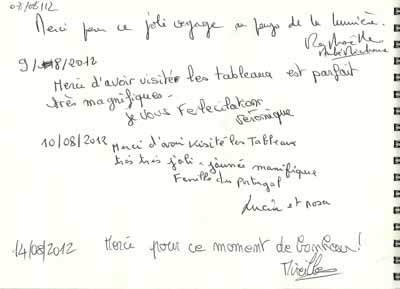 03/08/12
Merci pour ce joli voyage au pays de la lumière.
Raphaëlle
9/08/2012
Merie d'avoir visitée les tableaux est parfait
très magnifiques.
je vous Felecitations
Véronique
10/08/2012 Merci d'avoir visité les Tableaux
très très joli. journée manifique
Famille du Portugal
Lucia et rosa
14/08/2012 Merci pour ce moment de bonheur!
Mireille